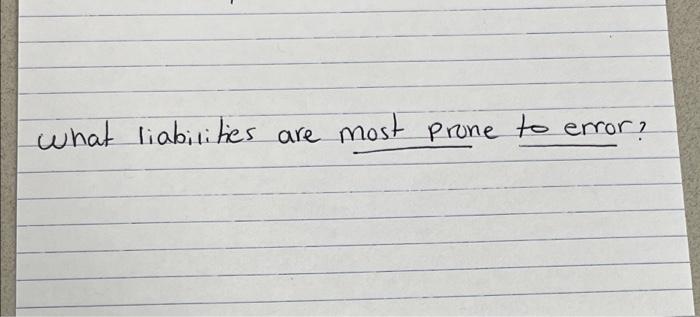 what liabilities are most prone to error?